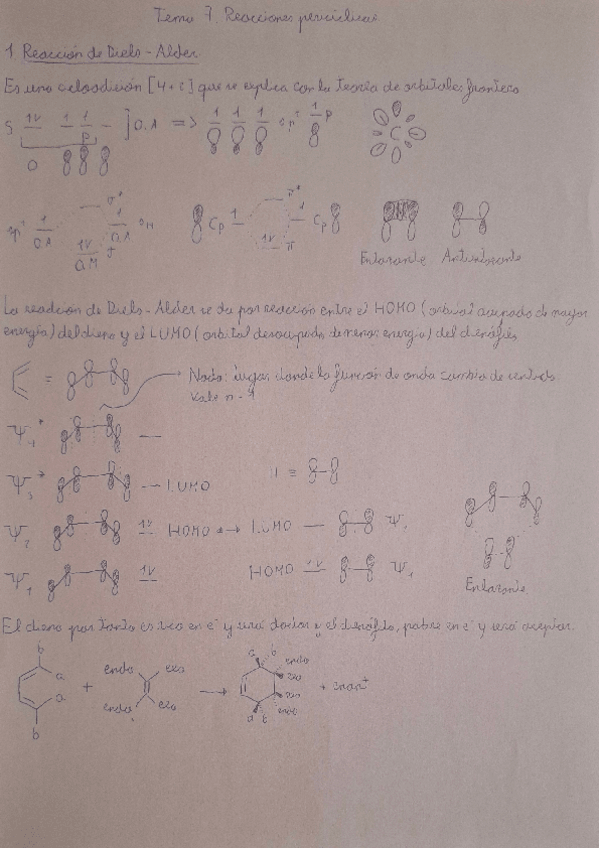 Tema 7. Reacciones pericíclicas
1. Reacción de Diels-Alder
Es una cicloadición [4+2] que se explica con la teoría de orbitales frontera
S 1v 1 1 ] O.A => 1 1 1 sp² 1 p
p
C
sp² 1 σ* 1
O.A O.A
1v
O.M σ
Cp 1 π* 1 Cp
1v π
Enlazante Antienlazante
La reacción de Diels-Alder se da por reacción entre el HOMO (orbital ocupado de mayor
energía) del dieno y el LUMO (orbital desocupado de menor energía) del dienófilo
≡ Nodo: lugar donde la función de onda cambia de sentido
Vale n-1
Ψ₄*
Ψ₃* LUMO ≡
Ψ₂ 1v HOMO LUMO Ψ₂
Ψ₁ 1v HOMO 1v Ψ₁
Enlazante
El dieno por tanto es rico en e⁻ y será dador y el dienófilo, pobre en e⁻ y será aceptor.
b a a b + endo exo endo exo → a b endo exo exo endo a b + enant